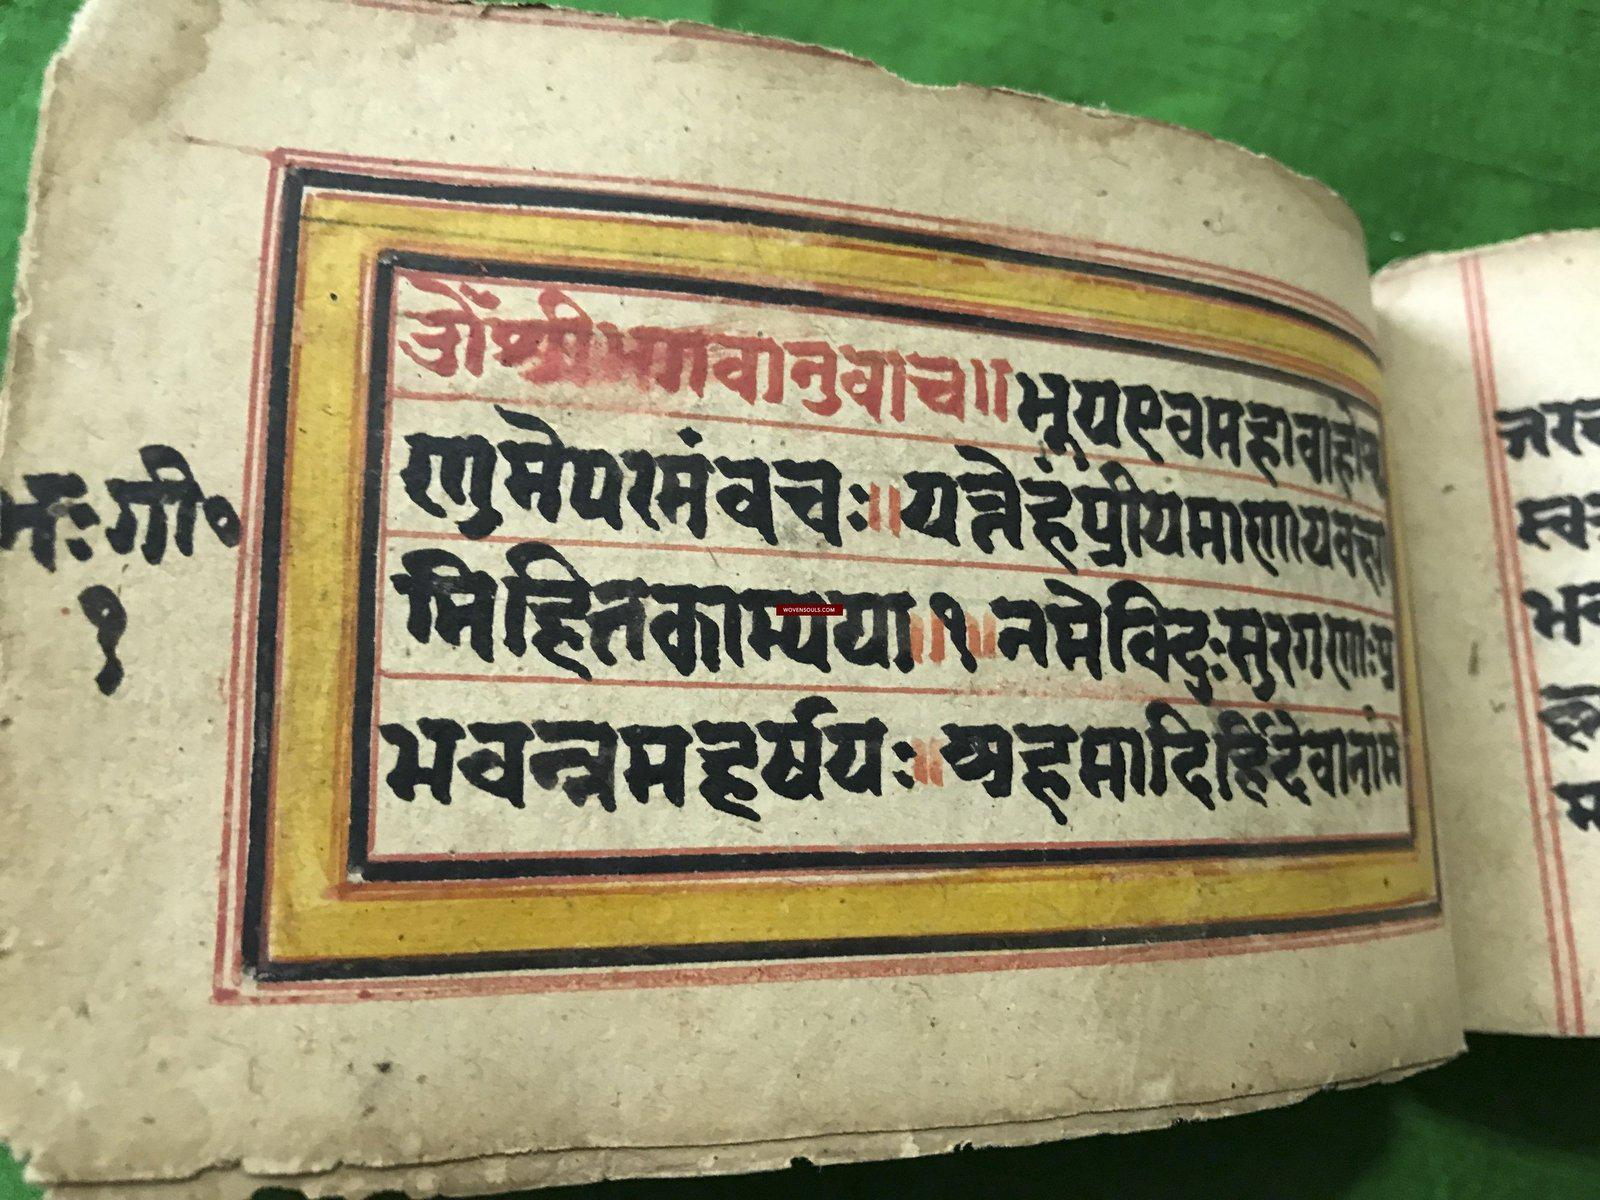 ओँ श्रीभगवानुवाच॥ भूयएवमहावाहोशृ
णुमेपरमंवचः॥ यत्तेहंप्रीयमाणायवक्ष्या
मिहितकाम्यया॥१॥नमेविदुःसुरगणाःप्र
भवन्नमहर्षयः॥ अहमादिर्हिदेवानांम
भ॰गी॰
१
WOVENSOULS.COM
जर
स्व
भव
म